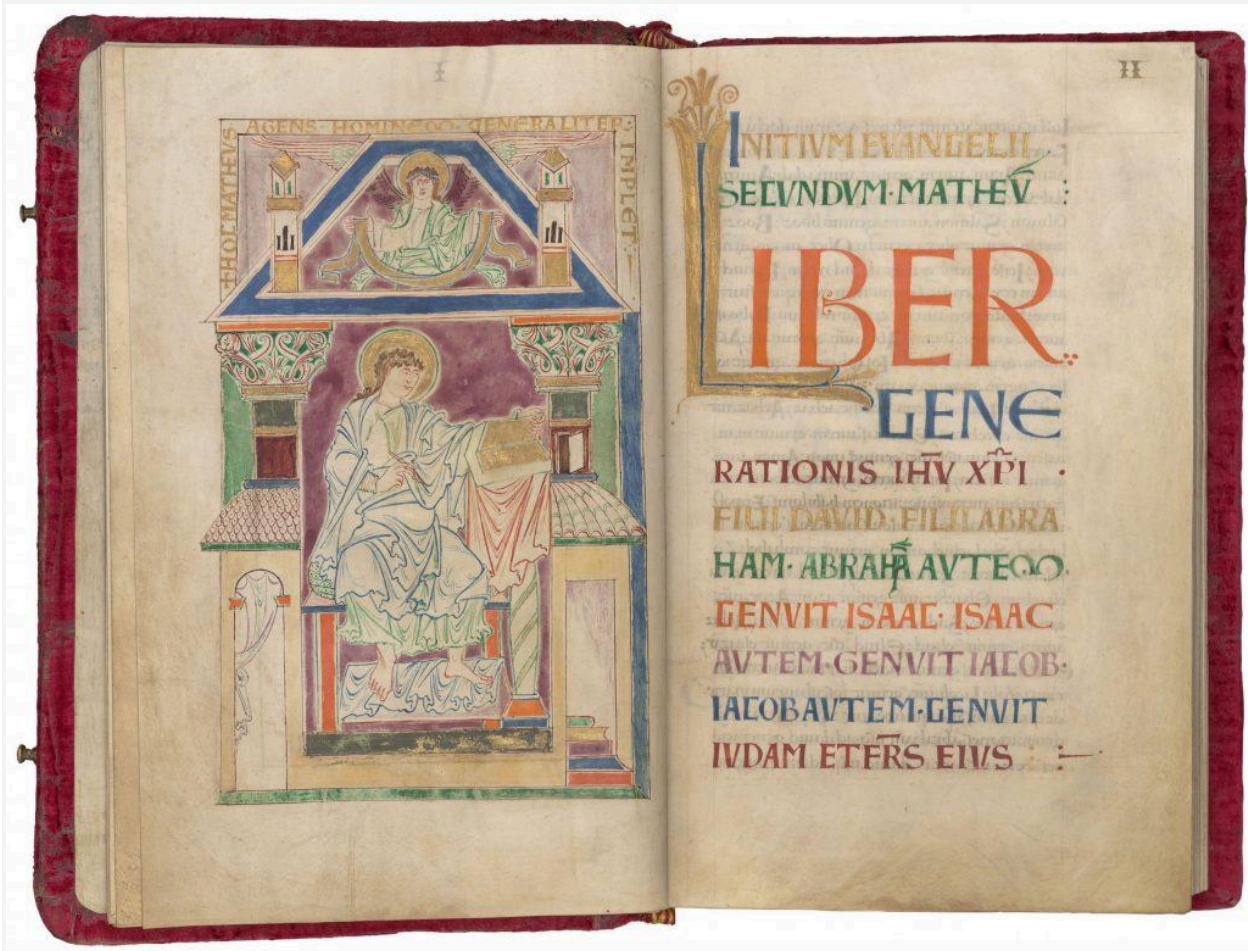 I
HOC MATHEVS
AGENS · HOMINEM · GENERALITER ·
IMPLET :
II
INITIVM EVANGELII
SECVNDVM · MATHEV̄ :
LIBER
GENE
RATIONIS IH̄V XP̄I ·
FILII DAVID FILII ABRA
HAM · ABRAHĀ AVTEM
GENVIT ISAAC · ISAAC
AVTEM · GENVIT IACOB ·
IACOB AVTEM · GENVIT
IVDAM ET FR̄S EIVS :